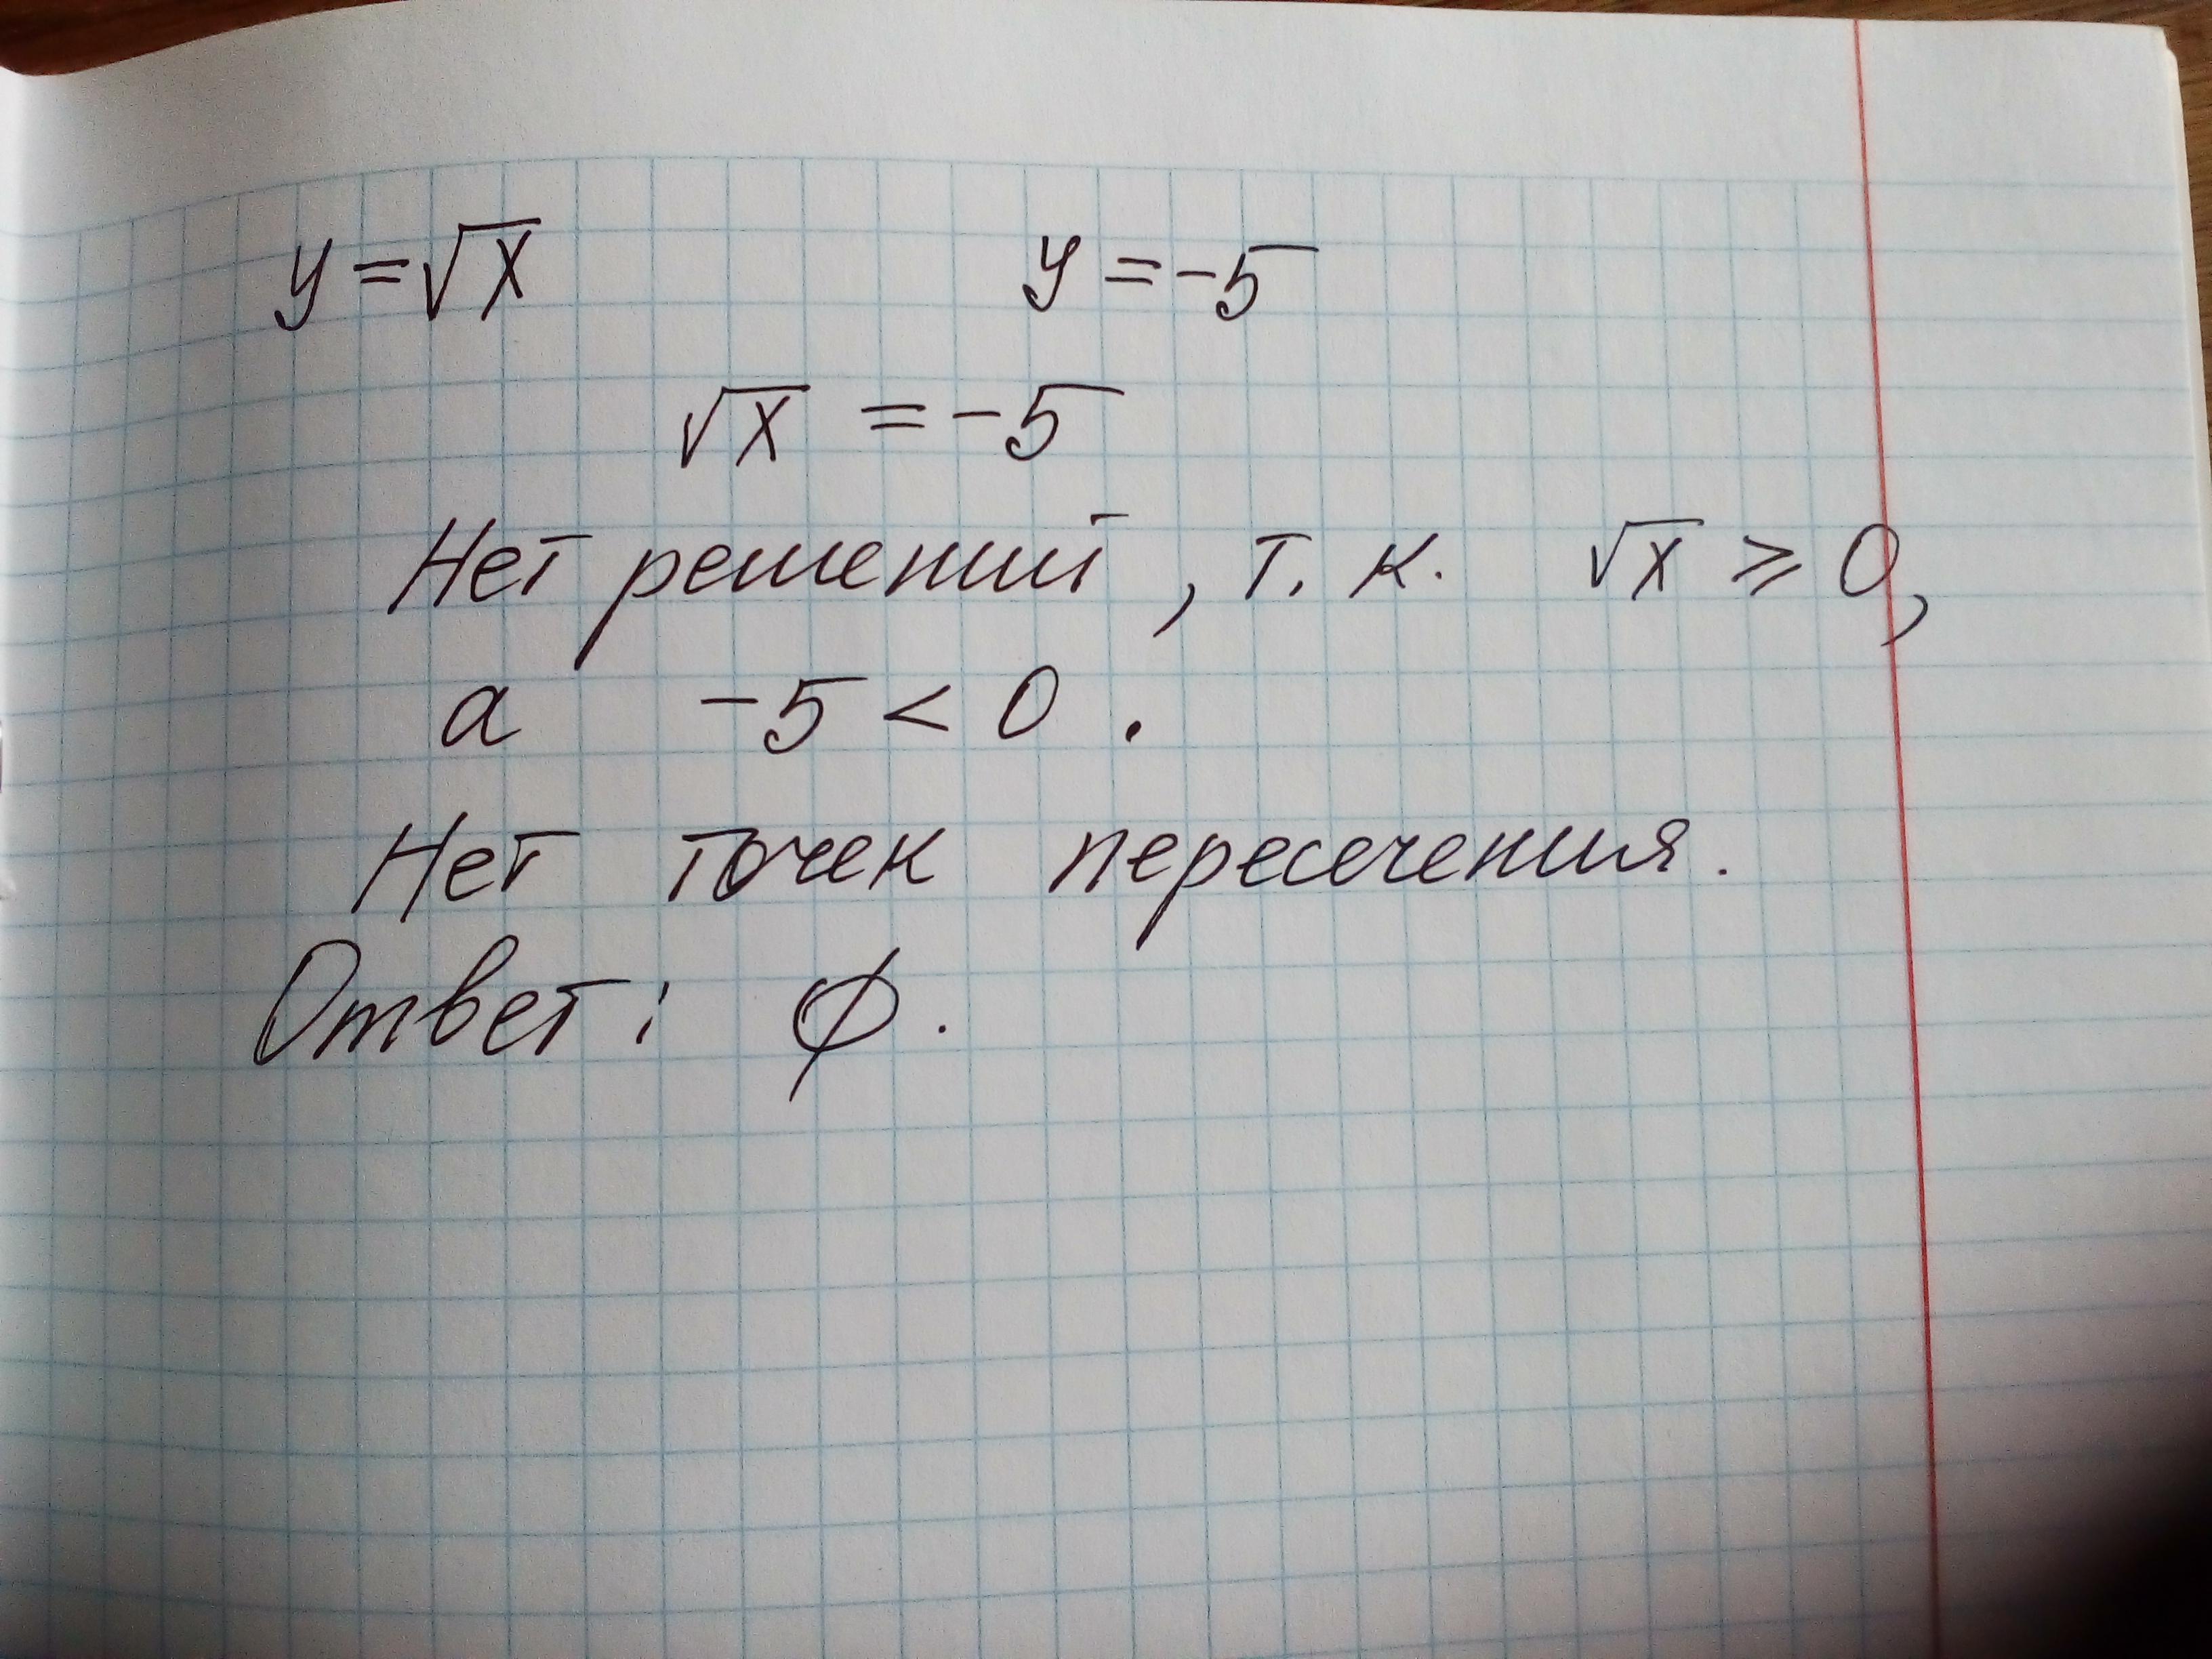 y = √x y = -5
√x = -5
Нет решений, т. к. √x ⩾ 0,
а -5 < 0 .
Нет точек пересечения.
Ответ: ∅.